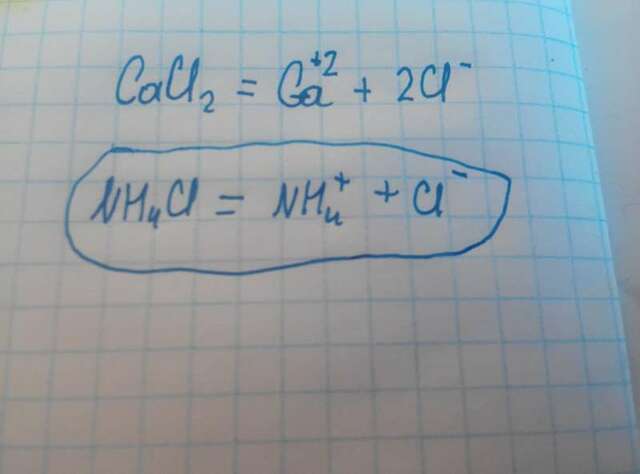 CaCl₂ = Ca⁺² + 2Cl⁻
NH₄Cl = NH₄⁺ + Cl⁻